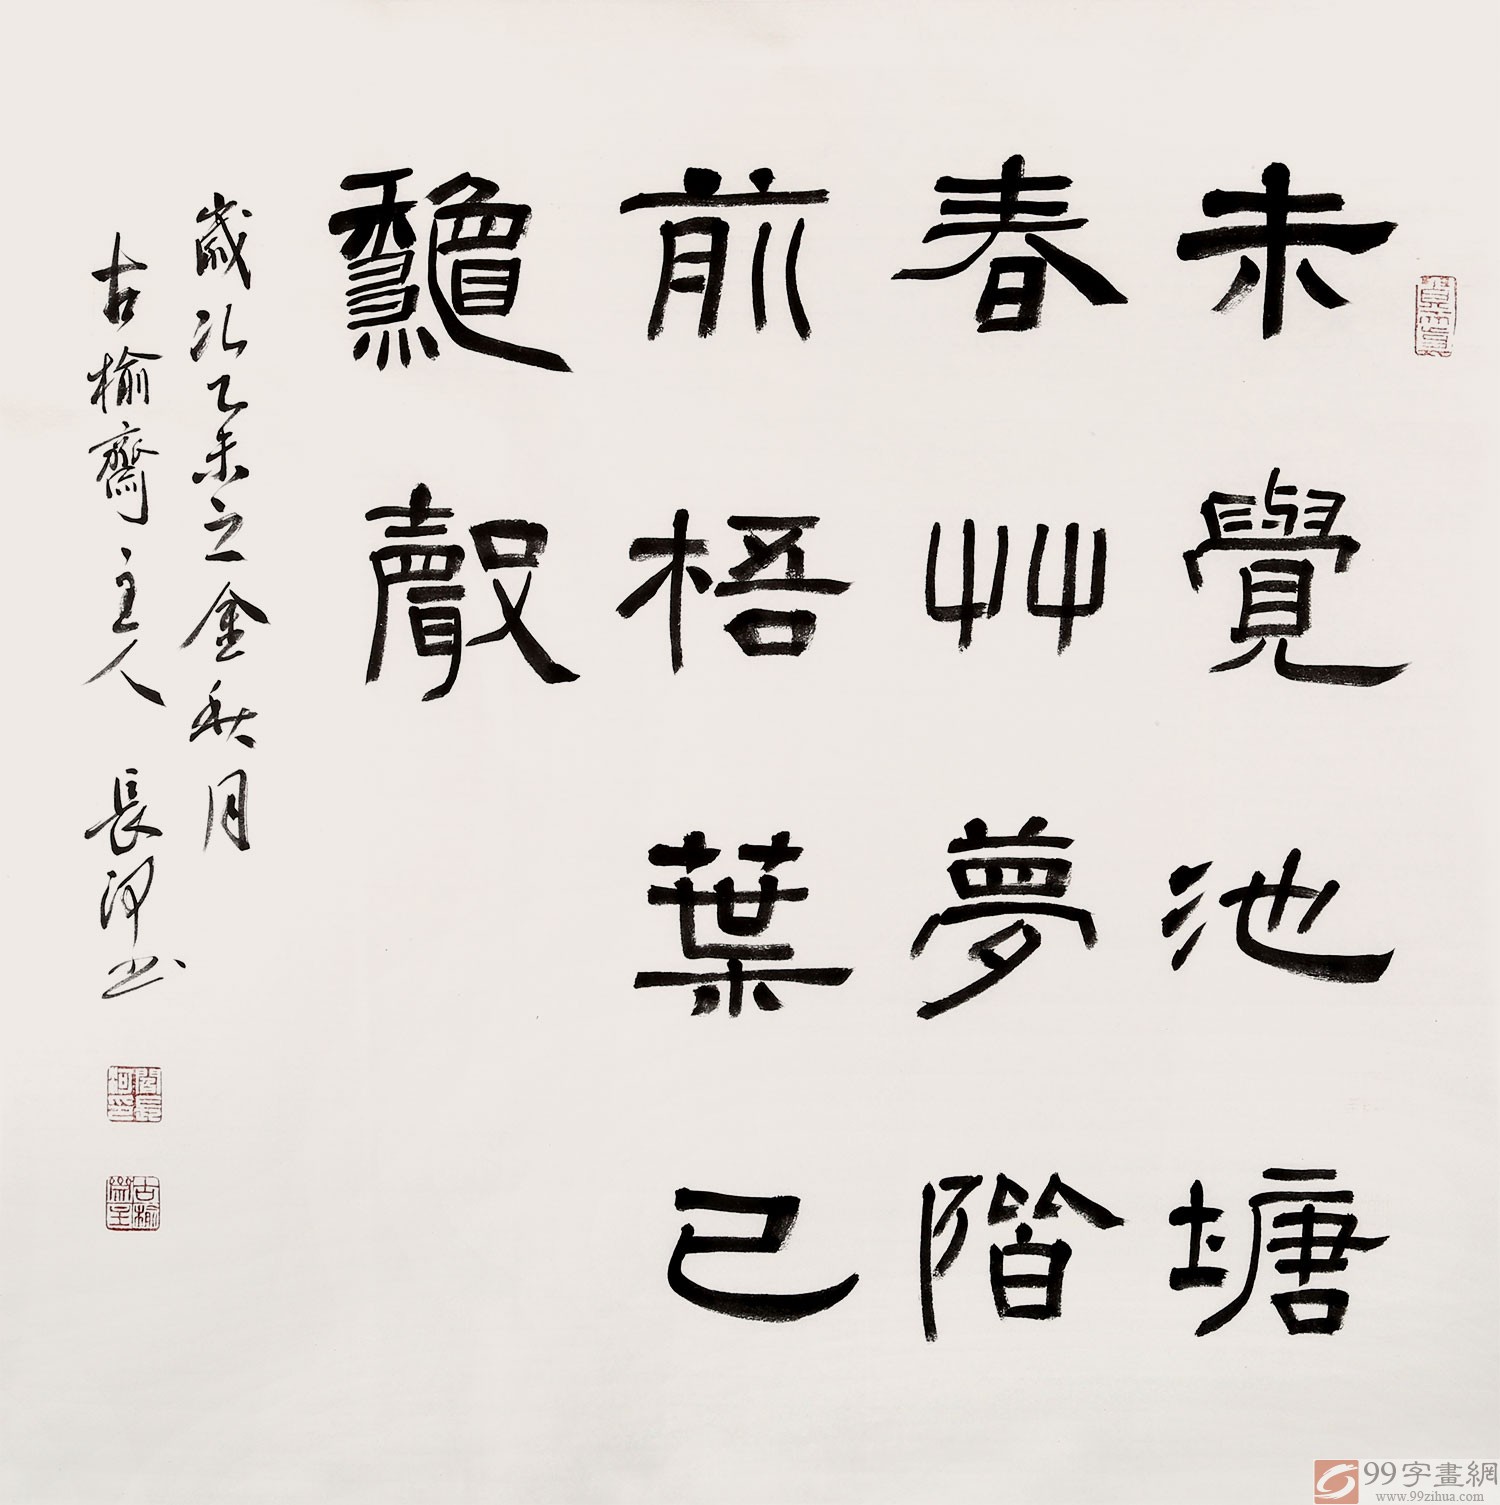 未覺池塘
春艸夢階
前梧葉已
龝聲
歲次乙未之金秋月
古榆齋主人 長河書
古榆齋主
99字畫網
www.99zihua.com